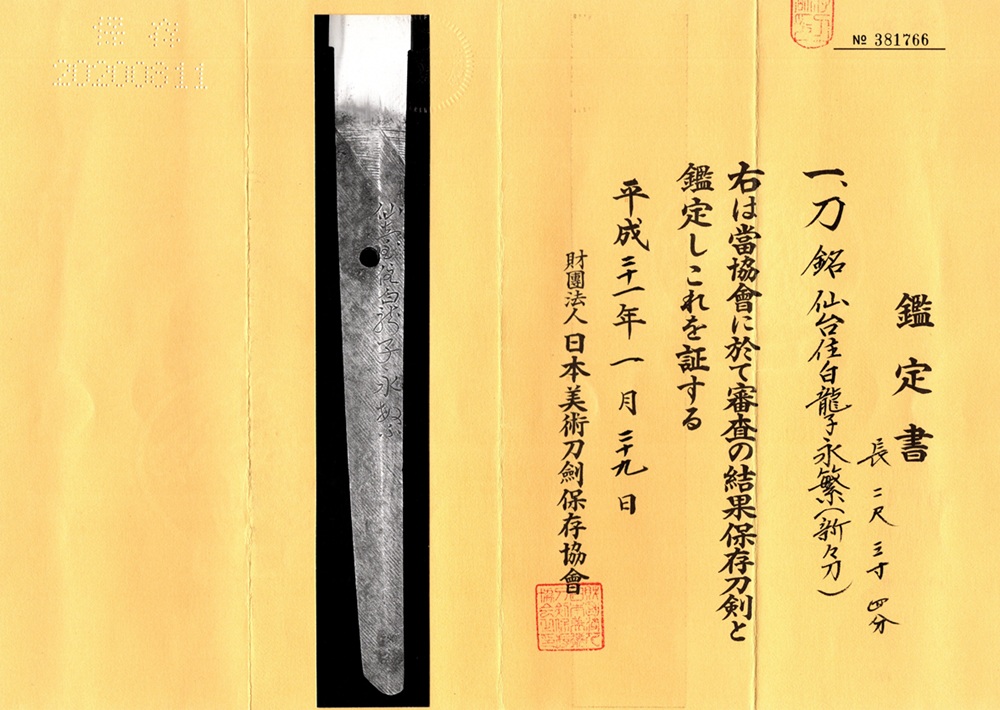 № 381766
鑑定書
一、刀 銘 仙台住白龍子永繁(新々刀)
長 二尺 三寸 四分
右は當協會に於て審査の結果保存刀剣と
鑑定しこれを証する
平成二十一年一月二十九日
財團法人日本美術刀劍保存協會
仙臺住白龍子永繁
保存
20200811